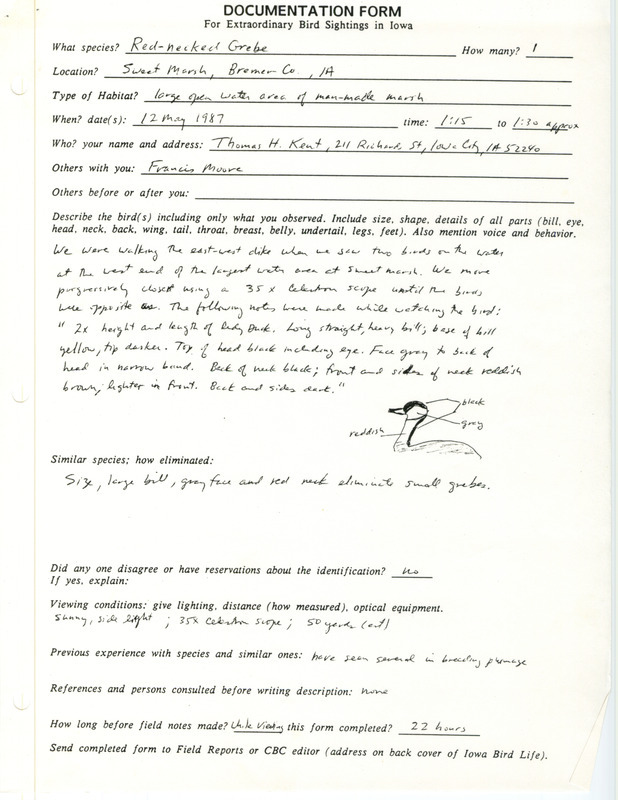 DOCUMENTATION FORM
For Extraordinary Bird Sightings in Iowa
What species? Red-necked Grebe How many? 1
Location? Sweet Marsh, Bremer Co, IA
Type of Habitat? large open water area of man-made marsh
When? date(s): 12 May 1987 time: 1:15 to 1:30 approx
Who? your name and address: Thomas H. Kent, 211 Richards St, Iowa City, IA 52240
Others with you: Francis Moore
Others before or after you:
Describe the bird(s) including only what you observed. Include size, shape, details of all parts (bill, eye,
head, neck, back, wing, tail, throat, breast, belly, undertail, legs, feet). Also mention voice and behavior.
We were walking the east-west dike when we saw two birds on the water
at the west end of the largest water area at Sweet Marsh. We move
progressively closer using a 35 x Celestron scope until the birds
were opposite us. The following notes were made while watching the bird:
" 2x height and length of Ruddy Duck. Long straight, heavy bill; base of bill
yellow, tip darker. Top of head black including eye. Face gray to back of
head in narrow band. Back of neck black; front and sides of neck reddish
brown, lighter in front. Back and sides dark."
black
gray
reddish
Similar species; how eliminated:
Size, large bill, gray face and red neck eliminate small grebes.
Did any one disagree or have reservations about the identification? no
If yes, explain:
Viewing conditions: give lighting, distance (how measured), optical equipment.
Sunny, side light; 35x Celestron scope; 50 yards (est)
Previous experience with species and similar ones: have seen several in breeding plumage
References and persons consulted before writing description: none
How long before field notes made? while viewing this form completed? 22 hours
Send completed form to Field Reports or CBC editor (address on back cover of Iowa Bird Life).